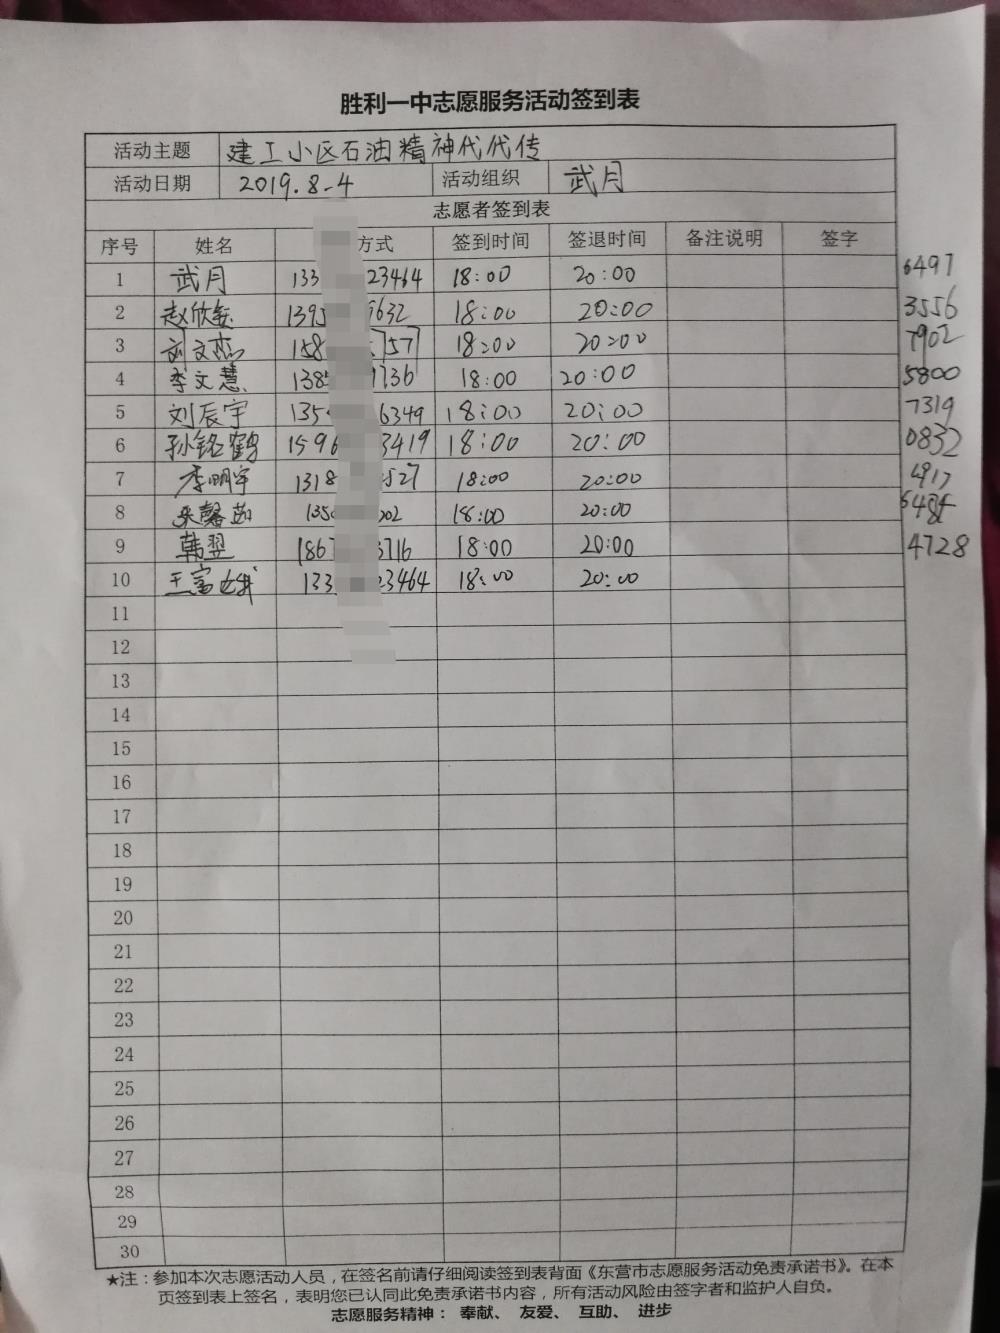 胜利一中志愿服务活动签到表
活动主题 建工小区石油精神代代传
活动日期 2019.8-4 活动组织 武月
志愿者签到表
序号 姓名 方式 签到时间 签退时间 备注说明 签字
1 武月 133 23464 18:00 20:00 6497
2 赵欣 1395 9632 18:00 20:00 3556
3 刘文杰 158 757 18:00 20:00 7902
4 李文慧 1385 9736 18:00 20:00 5800
5 刘辰宇 135 6349 18:00 20:00 7319
6 孙铭鹤 1596 3419 18:00 20:00 0832
7 李明宇 1318 527 18:00 20:00 4917
8 馨茹 135 002 18:00 20:00 648
9 韩翌 186 3716 18:00 20:00 4728
10 王富 133 23464 18:00 20:00
11
12
13
14
15
16
17
18
19
20
21
22
23
24
25
26
27
28
29
30
★注：参加本次志愿活动人员，在签名前请仔细阅读签到表背面《东营市志愿服务活动免责承诺书》。在本
页签到表上签名，表明您已认同此免责承诺书内容，所有活动风险由签字者和监护人自负。
志愿服务精神： 奉献、 友爱、 互助、 进步